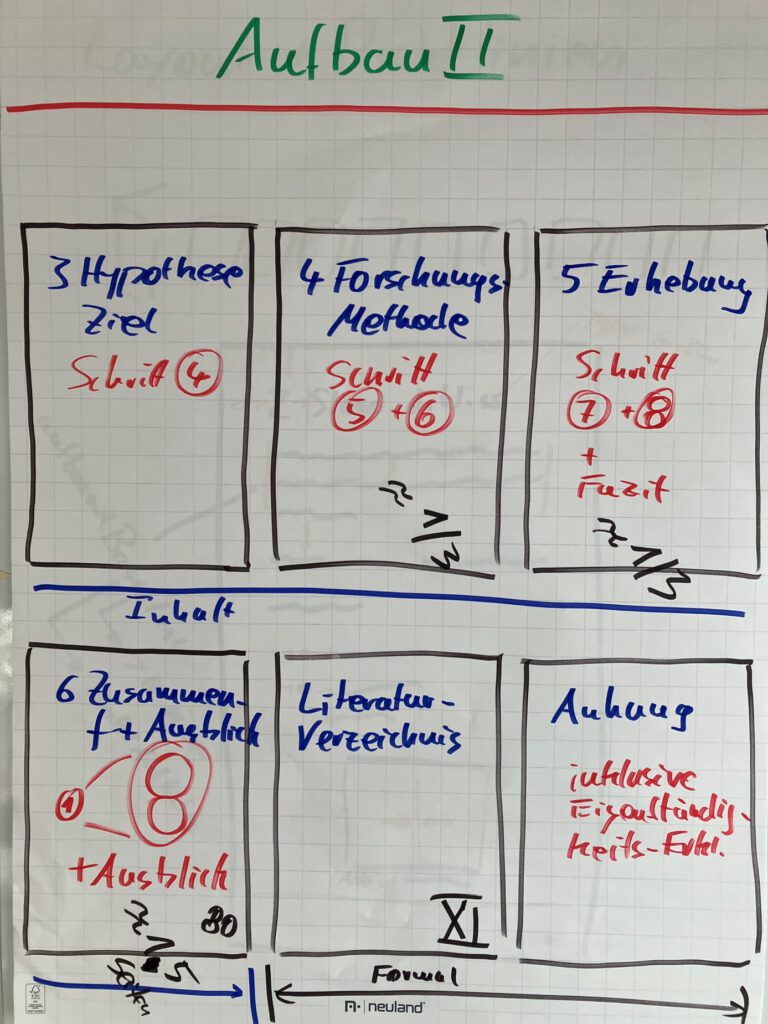 Aufbau II
3 Hypothese
Ziel
Schritt 4
4 Forschungs-
Methode
Schritt
5 + 6
≈ 1/3
5 Erhebung
Schritt
7 + 8
+
Fazit
≈ 1/3
Inhalt
6 Zusammen-
f + Ausblick
1 8
+ Ausblick
≈ 1.5
Seiten
80
Literatur-
Verzeichnis
XI
Anhang
inklusive
Eigenständig-
keits-Erkl.
Formal
neuland